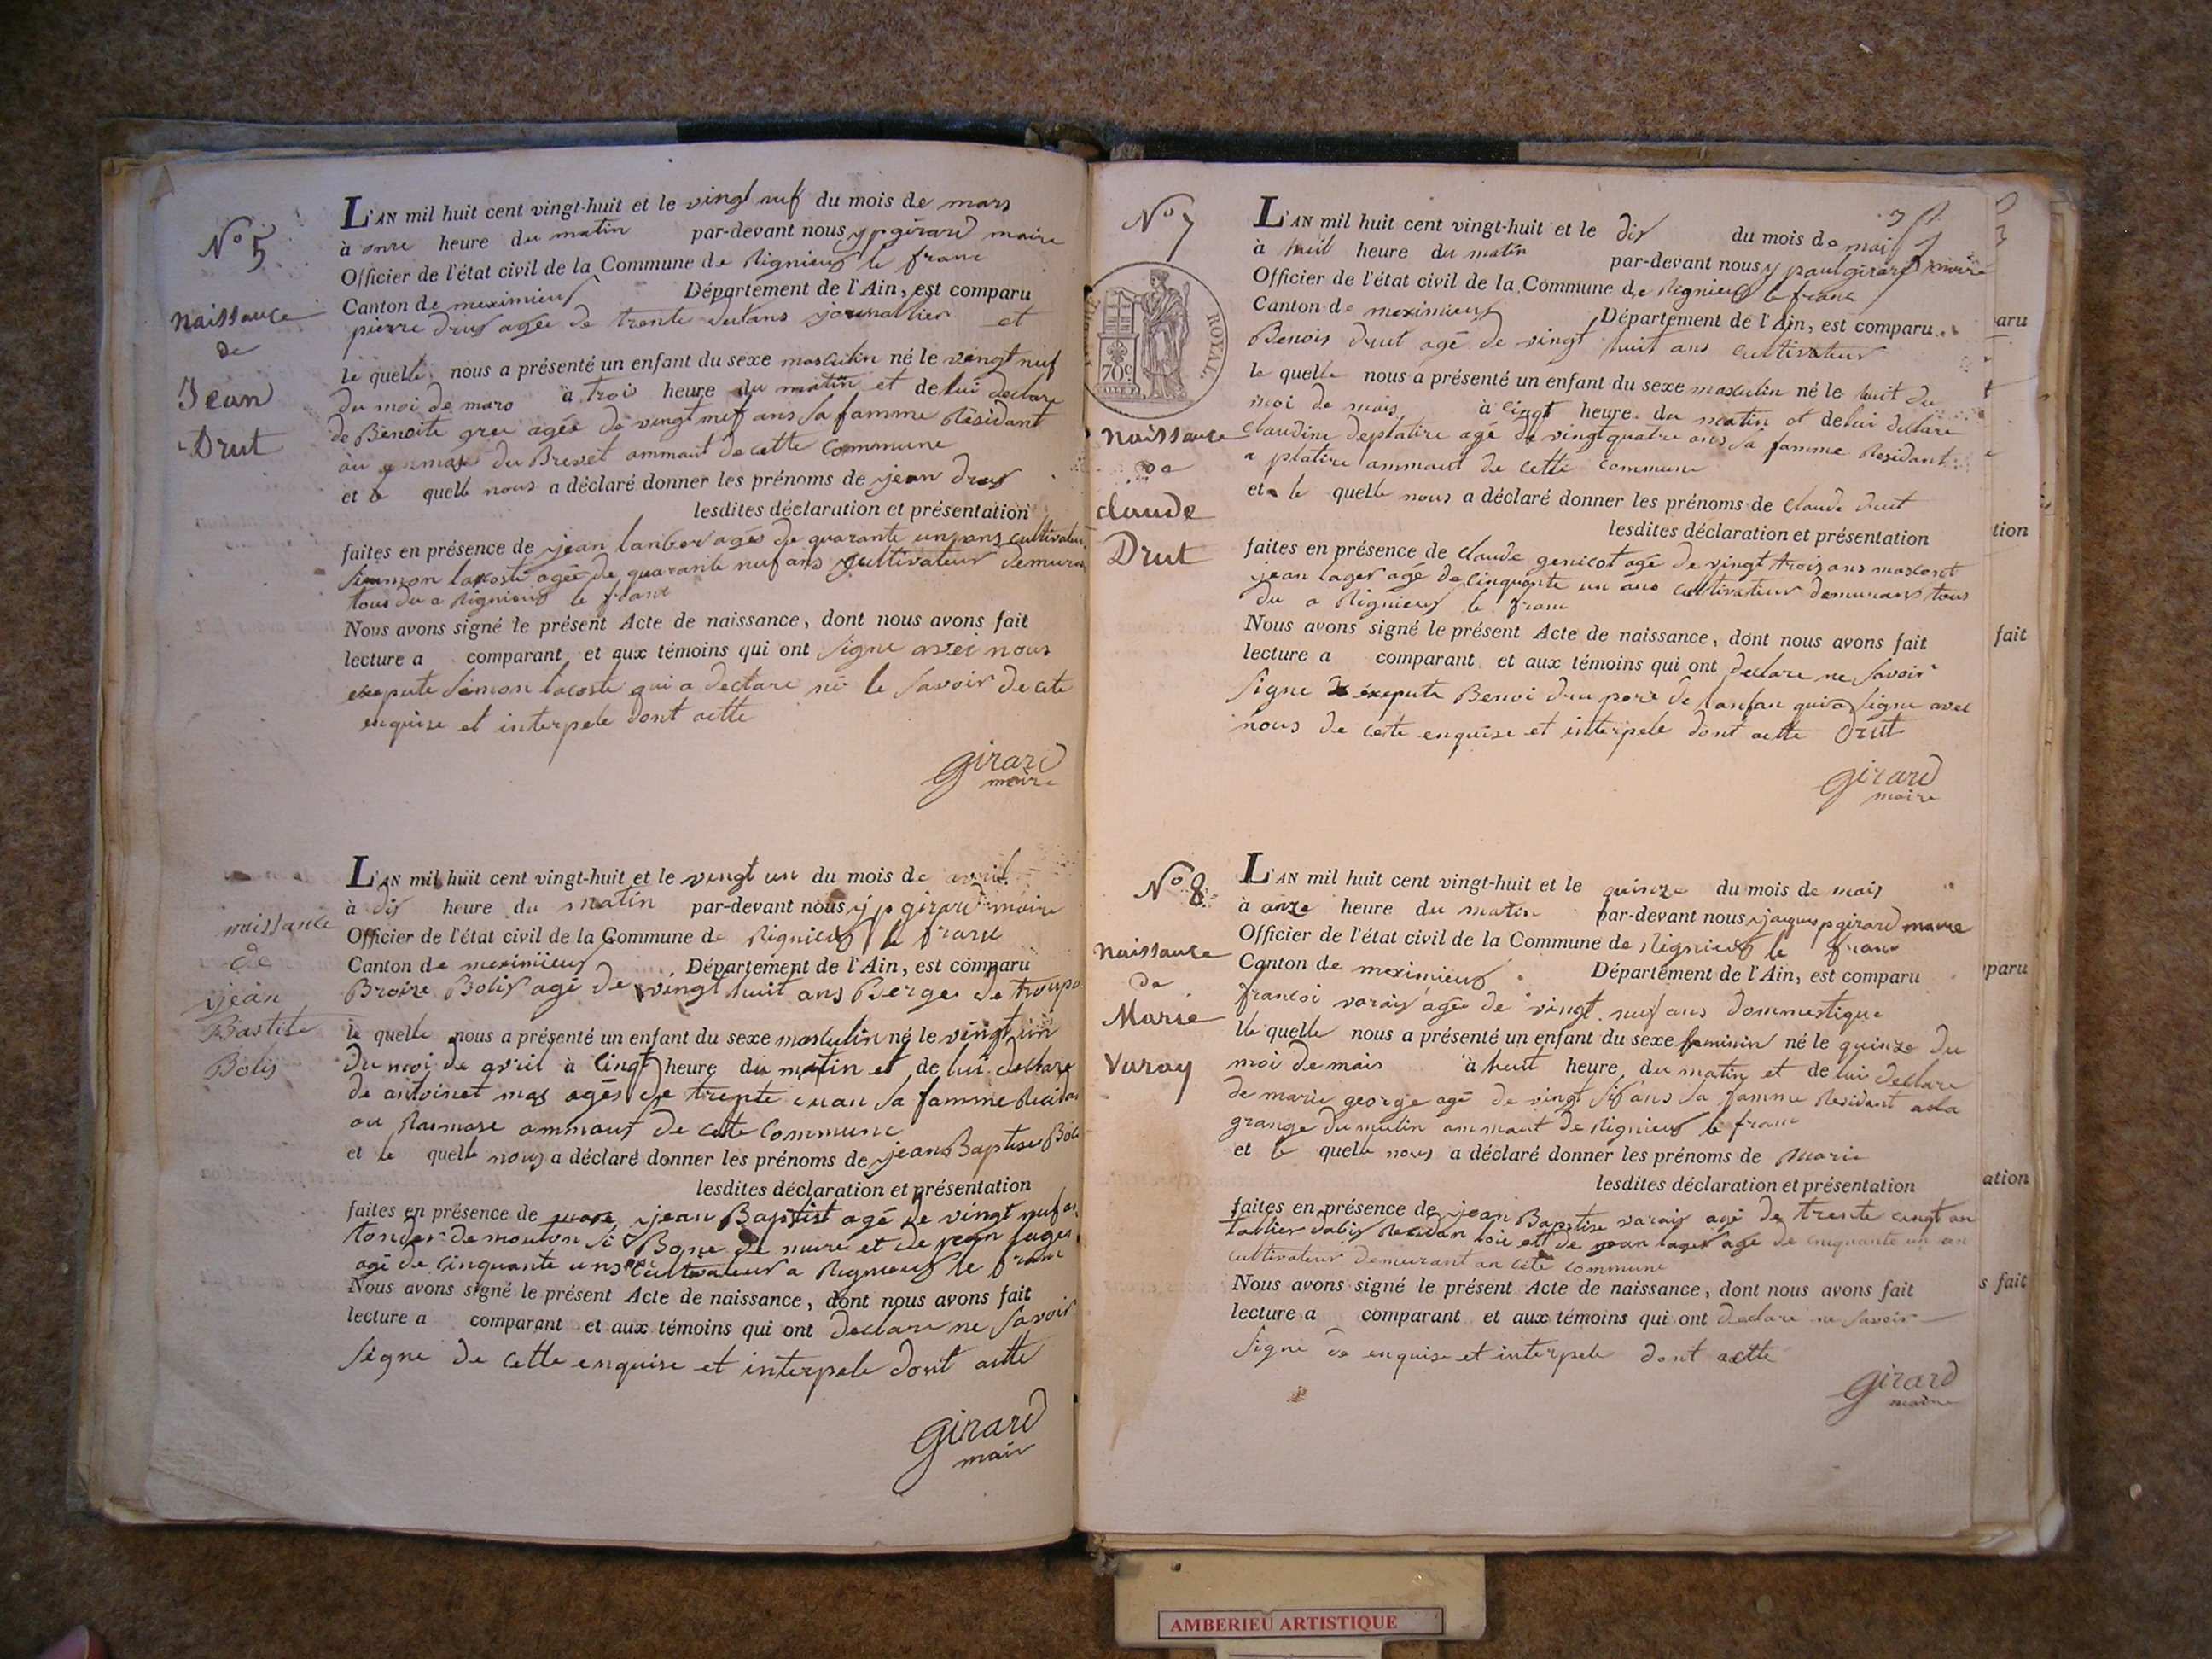 N° 5
naissance
de
Jean
Drut
L'AN mil huit cent vingt-huit et le vingt nuf du mois de mars
à onze heure du matin par-devant nous j p girard maire
Officier de l'état civil de la Commune de Rignieux le franc
Canton de meximieux Département de l'Ain, est comparu
pierre drut agée de trente ans journallier et
le quelle nous a présenté un enfant du sexe masculin né le vingt nuf
du moi de mars à trois heure du matin et de lui declare
de Benoite agée de vingt neuf ans sa famme Résidant
au du Brevet ammaut de cette commune
et le quelle nous a déclaré donner les prénoms de jean drut
lesdites déclaration et présentation
faites en présence de jean agés de quarante un ans cultivateur
simon lacoste agée de quarante nuf ans cultivateur
tous du a Rignieux le franc
Nous avons signé le présent Acte de naissance, dont nous avons fait
lecture a comparant et aux témoins qui ont signe avec nous
exepute simon lacoste qui a declare ne le savoir de cete
enquise et interpele dont actte
girard
maire
naissance
de
jean
Bastite
Bolis
L'AN mil huit cent vingt-huit et le vingt un du mois de avril
à dix heure du matin par-devant nous j p girard maire
Officier de l'état civil de la Commune de Rignieux le franc
Canton de meximieux Département de l'Ain, est comparu
agé de vingt huit ans Berge de
le quelle nous a présenté un enfant du sexe masculin né le vingt un
du moi de avril à cinqt heure du matin et de lui declare
de antoinet mas agés de trente sa famme
au ammaut de cette commune
et le quelle nous a déclaré donner les prénoms de jean Baptise
lesdites déclaration et présentation
faites en présence de jean Baptist agé de vingt nuf
tonder de mouton et de jean lager
agé de cinquante uns cultivateur a Rignieux le franc
Nous avons signé le présent Acte de naissance, dont nous avons fait
lecture a comparant et aux témoins qui ont declare ne savoir
signe de cette enquise et interpele dont actte
girard
mair
N° 7
ROYAL
70c
naissance
de
claude
Drut
L'AN mil huit cent vingt-huit et le dix du mois de mai
à huit heure du matin par-devant nous j paul girard maire
Officier de l'état civil de la Commune de Rignieux le franc
Canton de meximieux Département de l'Ain, est comparu
Benois drut agé de vingt huit ans cultivateur
le quelle nous a présenté un enfant du sexe masculin né le huit du
moi de mais à cinqt heure du matin et de lui declare
claudine deplatire agé de vingt quatre ans sa famme Residant
a platire ammaut de cette commune
et le quelle nous a déclaré donner les prénoms de claude drut
lesdites déclaration et présentation
faites en présence de claude genicot agé de vingt trois ans
jean lager agé de cinquante un ans cultivateur demurans tous
du a Rignieux le franc
Nous avons signé le présent Acte de naissance, dont nous avons fait
lecture a comparant et aux témoins qui ont declare ne savoir
signe exepute Benoi dru pere de lanfan qui a signe avec
nous de cete enquise et interpele dont actte Drut
girard
maire
N° 8
Naissance
de
Marie
Varay
L'AN mil huit cent vingt-huit et le quinze du mois de mais
à onze heure du matin par-devant nous jaques p girard maire
Officier de l'état civil de la Commune de Rignieux le franc
Canton de meximieux Département de l'Ain, est comparu
francoi varais agée de vingt nuf ans dommestique
le quelle nous a présenté un enfant du sexe feminin né le quinze du
moi de mais à huit heure du matin et de lui declare
de marie george agé de vingt six ans sa famme Residant a la
grange du mulin ammaut de Rignieux le franc
et le quelle nous a déclaré donner les prénoms de Marie
lesdites déclaration et présentation
faites en présence de jean Baptise varais agé de trente cinqt an
et de jean lager agé de cinquante un an
cultivateur demurant an cete commune
Nous avons signé le présent Acte de naissance, dont nous avons fait
lecture a comparant et aux témoins qui ont declare ne savoir
signe de enquise et interpele dont actte
girard
maire
aru
tion
fait
paru
ation
s fait
AMBERIEU ARTISTIQUE